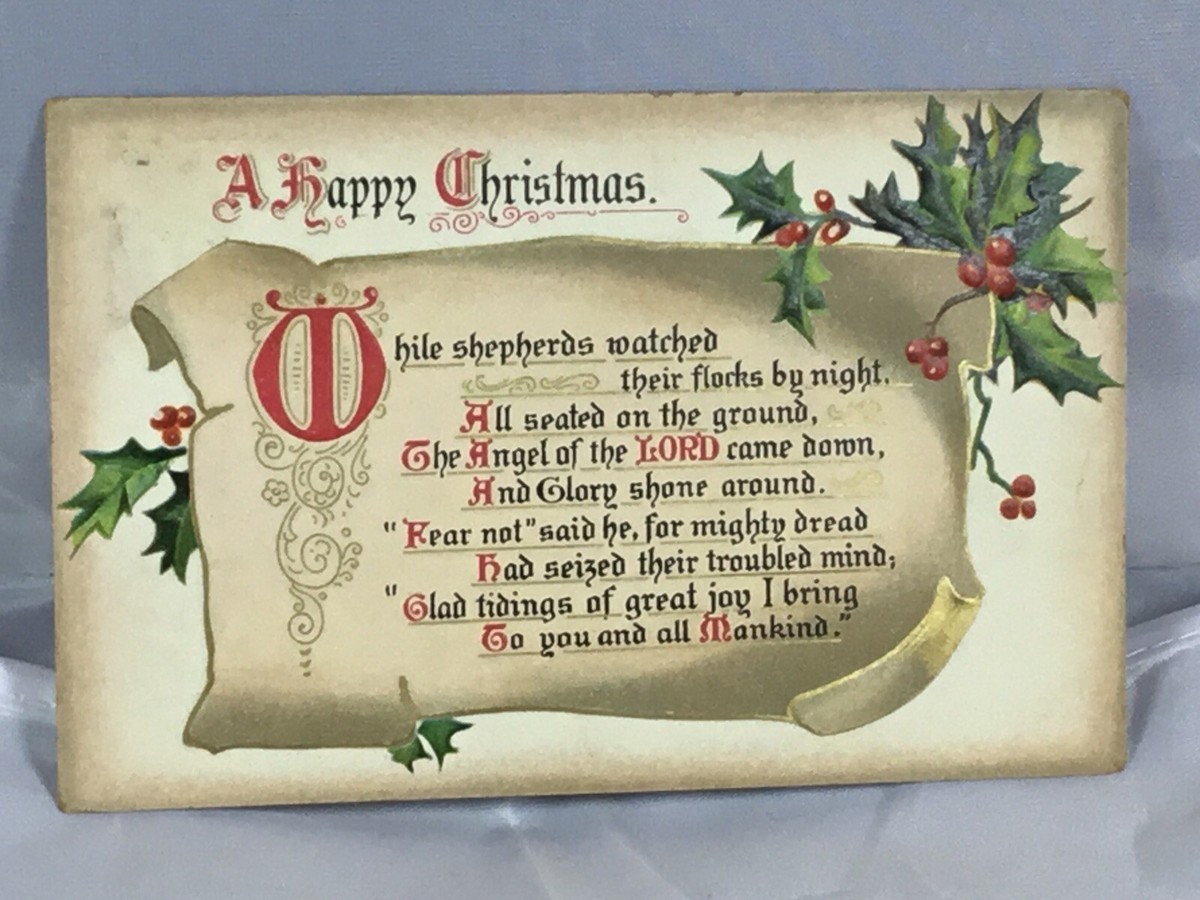 A Happy Christmas.
While shepherds watched
their flocks by night,
All seated on the ground,
The Angel of the LORD came down,
And Glory shone around.
"Fear not" said he, for mighty dread
Had seized their troubled mind;
"Glad tidings of great joy I bring
To you and all Mankind."